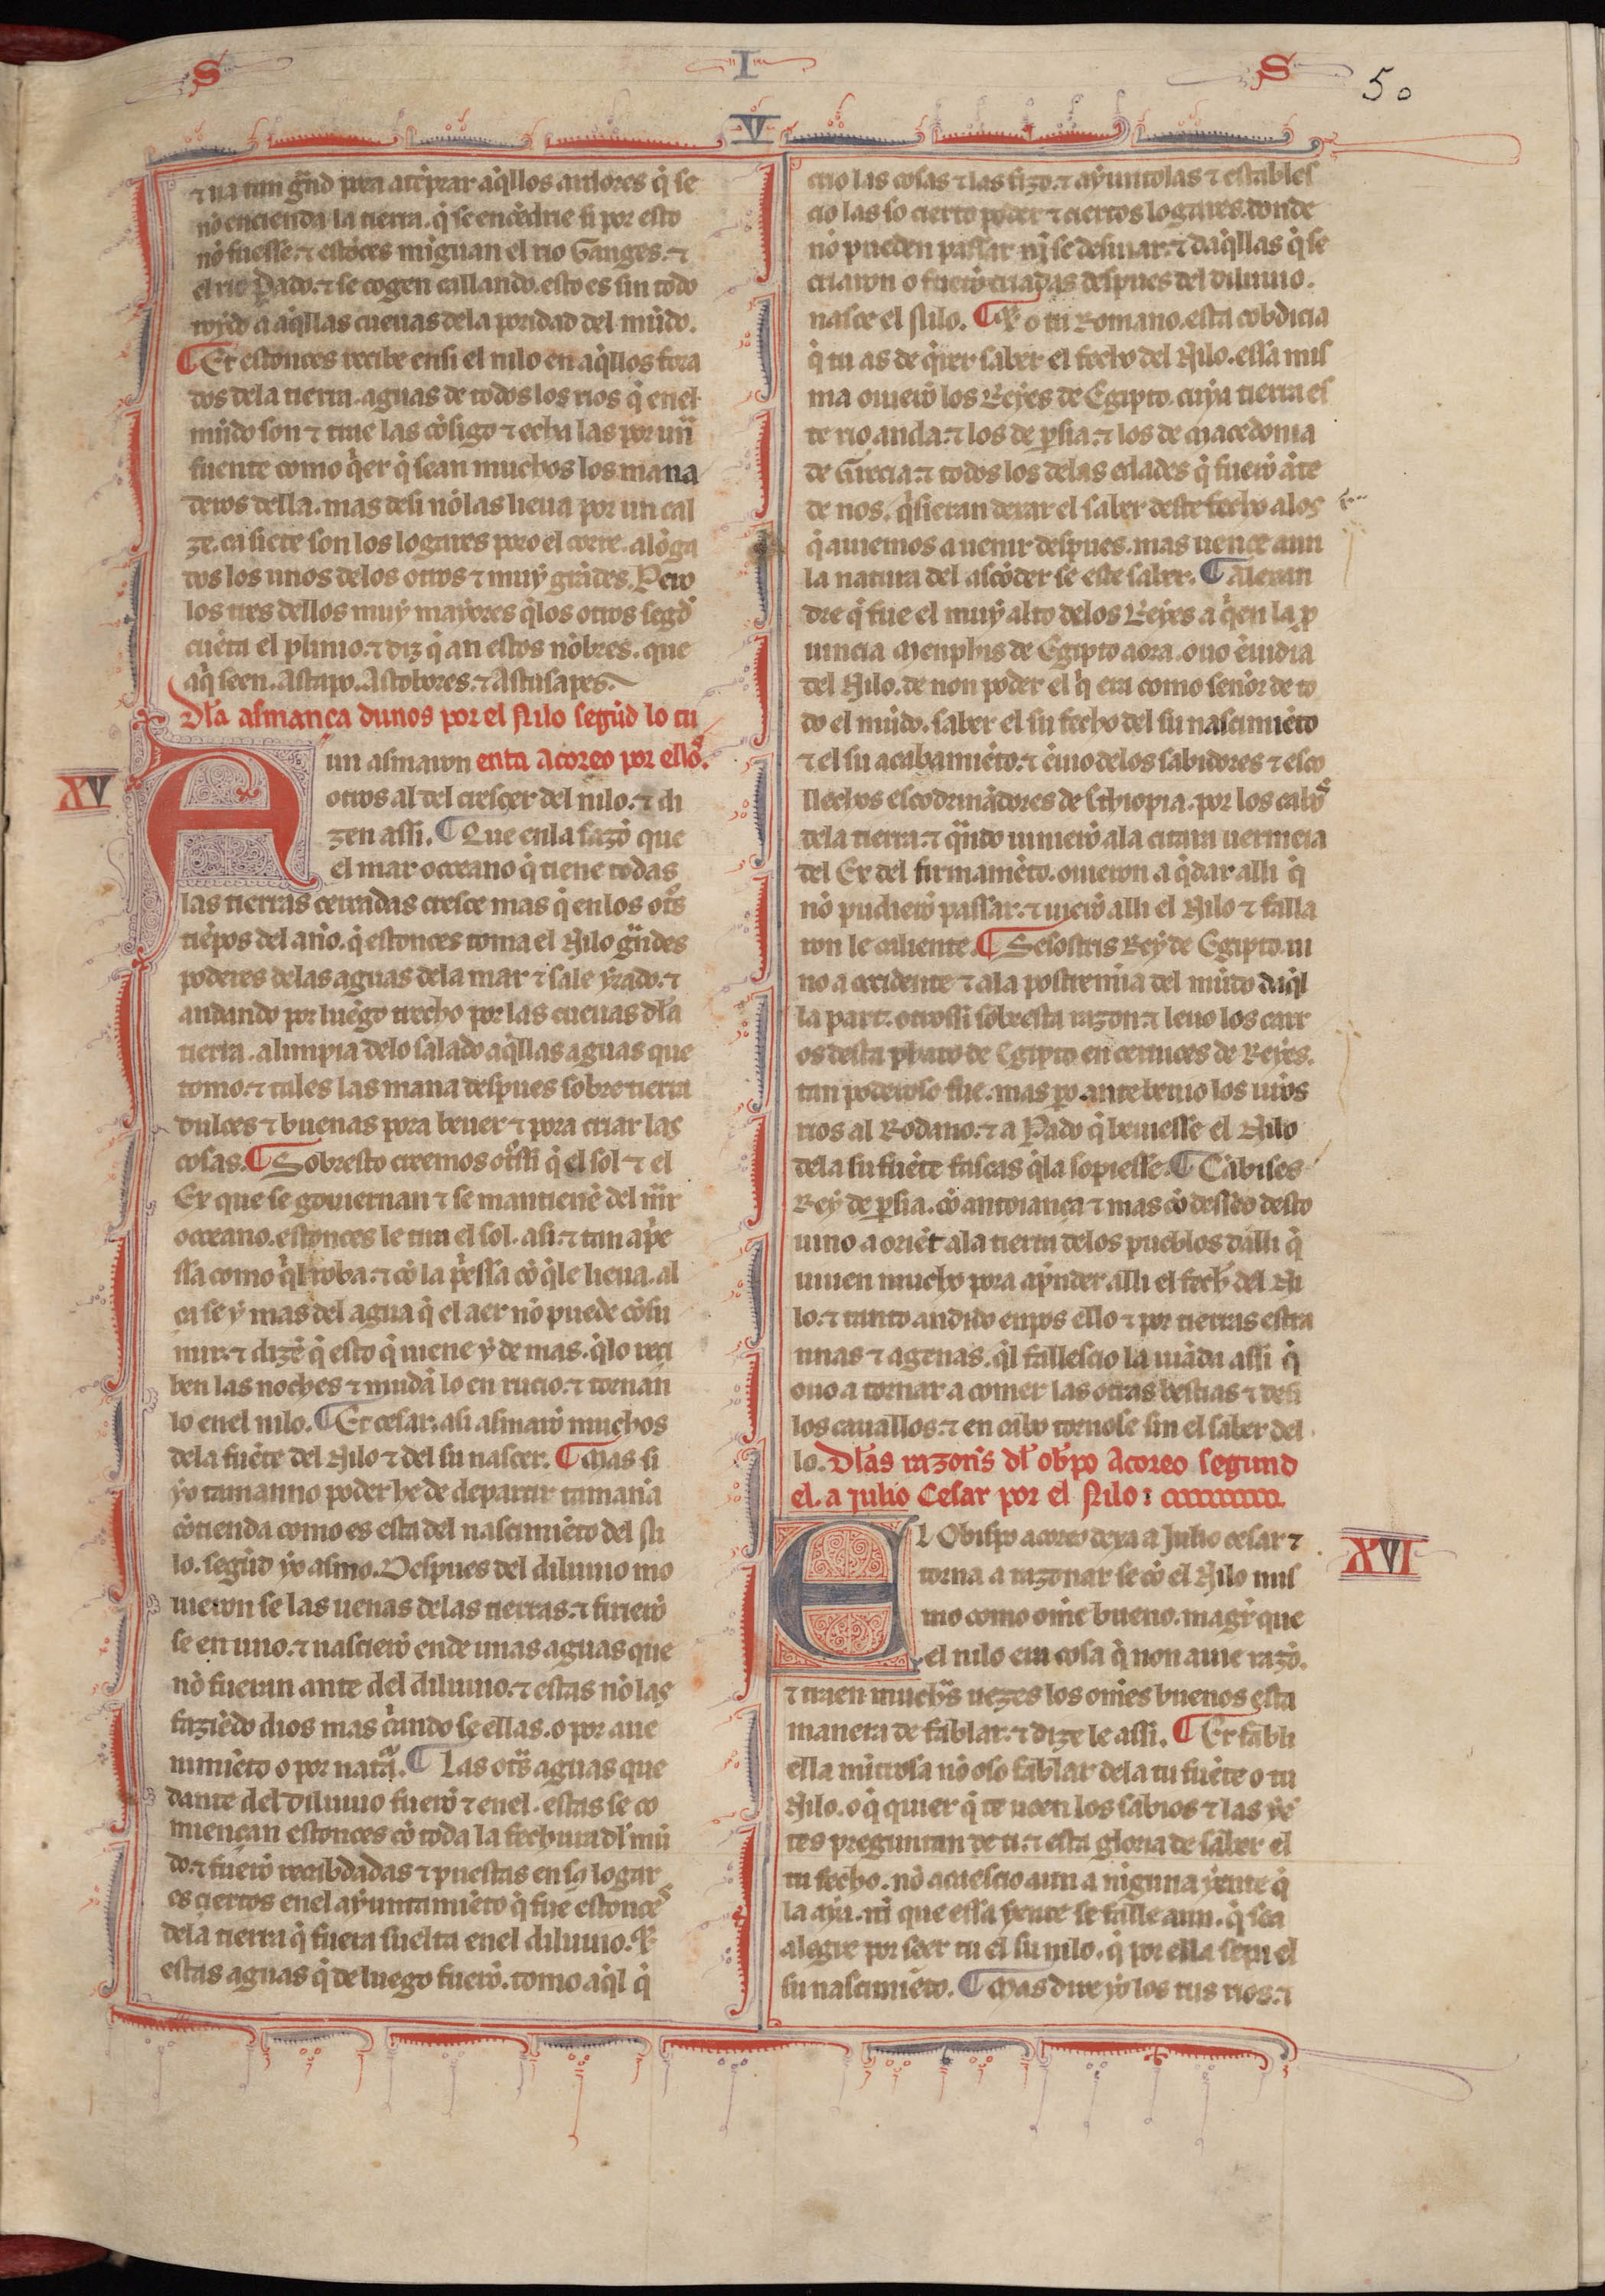 S I S
50
V
⁊ ua tan grãd pora atẽprar aq̃llos ardores q̃ se
nõ encienda la tierra. q̃ se encẽdrie si por esto
nõ fuesse. ⁊ estõces miguan el rio Ganges. ⁊
el rio Pado. ⁊ se cogen callando. esto es sin todo
roydo a aq̃llas cueuas dela poridad del mũdo.
¶ Et estonces recibe ensi el nilo en aq̃llos fora
dos dela tierra. aguas de todos los rios q̃ enel
mũdo son ⁊ trae las cõsigo ⁊ echa las por una
fuente como q̃er q̃ sean muchos los mana
deros della. mas desi nõ las lieua por un cal
ze. ca siete son los logares poro el corre. alõga
dos los unos delos otros ⁊ muy grãdes. Pero
los tres dellos muy mayores q̃los otros segũd
cuẽta el plinio. ⁊ diz q̃ an estos nõbres. que
aq̃ seen. Astapo. Astobores. ⁊ Astusapes.
Dła asmança dunos por el Nilo segũd lo cu
enta Acoreo por ellos.
XV
Aun asmaron
otros al del crescer del nilo. ⁊ di
zen assi. ¶ Que enla sazõ que
el mar occeano q̃ tiene todas
las tierras cerradas cresce mas q̃ enlos otros
tiẽpos del año. q̃ estonces toma el Nilo grãdes
poderes delas aguas dela mar ⁊ sale yrado. ⁊
andando por luẽgo trecho por las cueuas dła
tierra. alimpia delo salado aq̃llas aguas que
tomo. ⁊ tales las mana despues sobre tierra
dulces ⁊ buenas pora beuer ⁊ pora criar las
cosas. ¶ Sobresto creemos otrossi q̃ el sol ⁊ el
Ex que se gouiernan ⁊ se mantienẽ del mar
occeano. estonces le tira el sol. asi. ⁊ tan apře
ssa como q̃l roba. ⁊ cõ la přessa cõ q̃le lieua. al
ça se y mas del agua q̃ el aer nõ puede cõsu
mir. ⁊ dizẽ q̃ esto q̃ uiene y de mas. q̃lo reci
ben las noches ⁊ mudã lo en rucio. ⁊ tornan
lo enel nilo. ¶ Et cesar. asi asmarõ muchos
dela fuẽte del Nilo ⁊ del su nascer. ¶ Mas si
yo tamanno poder he de departir tamaña
cõtienda como es esta del nascimiẽto del Ni
lo. segũd yo asmo. Despues del diluuio mo
uieron se las uenas delas tierras. ⁊ firierõ
se en uno. ⁊ nascierõ ende unas aguas que
nõ fueran ante del diluuio. ⁊ estas nõ las
faziẽdo dios mas criando se ellas. o por aue
nimiẽto o por natura. ¶ Las otras aguas que
dante del diluuio fuerõ ⁊ enel. estas se co
miençan estonces cõ toda la fechura dł mũ
do. ⁊ fuerõ recabdadas ⁊ puestas en sus logar
es ciertos enel ayuntamiẽto q̃ fue estonces
dela tierra q̃ fuera suelta enel diluuio. Et
estas aguas q̃ de luego fuerõ. tomo aq̃l q̃
crio las cosas ⁊ las fizo. ⁊ ayuntolas ⁊ estables
cio las so cierto poder ⁊ ciertos logares. donde
nõ pueden passar nĩ se desuiar. ⁊ daq̃llas q̃ se
criaron o fuerõ criadas despues del diluuio.
nasce el Nilo. ¶ Et o tu Romano. esta cobdicia
q̃ tu as de q̃rer saber el fecho del Nilo. essa mis
ma ouierõ los Reyes de Egipto. cuya tierra es
te rio anda. ⁊ los de persia. ⁊ los de macedonia
de Grecia. ⁊ todos los delas edades q̃ fuerõ ãte
de nos. q̃sieran dexar el saber deste fecho alos
q̃ auiemos a uenir despues. mas uence aun
la natura del ascõder se este saber. ¶ Alexan
dre q̃ fue el muy alto delos Reyes a q̃en la pro
uincia menphis de Egipto aora. ouo ẽuidia
del Nilo. de non poder el q̃ era como señor de to
do el mũdo. saber el su fecho del su nascimiẽto
⁊ el su acabamiẽto. ⁊ ẽuio delos sabidores ⁊ esco
llechos escodriñadores de Ethiopia. por los cabos
dela tierra. ⁊ quãdo uiniero ala cinta uermeia
del Ex del firmamẽto. ouieron a q̃dar alli q̃
nõ pudierõ passar. ⁊ uierõ alli el Nilo ⁊ falla
ron le caliente. ¶ Sesostris Rey de Egipto. ui
no a occidente ⁊ ala postremia del mũdo daq̃l
la part. otrossi sobresta razon. ⁊ leuo los carr
os desta pharo de Egipto en ceruices de Reyes.
tan poderoso fue. mas pero ante beuio los ur̃os
rios al Rodano. ⁊ a Pado q̃ beuiesse el Nilo
dela su fuẽte fascas q̃la sopiesse. ¶ Cãbises
Rey de persia. cõ antoiança ⁊ mas cõ desseo desto
uino a oriẽt ala tierra delos pueblos dalli q̃
uiuen mucho pora aprẽnder alli el fecho del Ni
lo. ⁊ tanto andido enpos ello ⁊ por tierras estra
nnas ⁊ agenas. q̃l fallescio la uiãda assi q̃
ouo a tornar a comer las otras bestias ⁊ desi
los cauallos. ⁊ en cabo tornose sin el saber del
lo. Dłas razones dł obispo Acoreo segund
el. a Julio Cesar por el Nilo:
XVI
El Obispo acoreo dexa a Julio cesar ⁊
torna a razonar se cõ el Nilo mis
mo como ome bueno. magr̃ que
el nilo era cosa q̃ non auie razõ.
⁊ traen muchas uezes los omes buenos esta
manera de fablar. ⁊ dize le assi. ¶ Et fabli
ella mĩtrosa nõ oso fablar dela tu fuẽte o tu
Nilo. o q̃ quier q̃ te ueen los sabios ⁊ las yẽ
tes preguntan de ti. ⁊ esta gloria de saber el
tu fecho. nõ acaescio aun a nĩguna yente q̃
la aya. nĩ que essa yente se falle aun. q̃ sea
alegre por seer tu el su nilo. q̃ por ella sepa el
su nascimiẽto. ¶ Mas dire yo los tus rios. ⁊